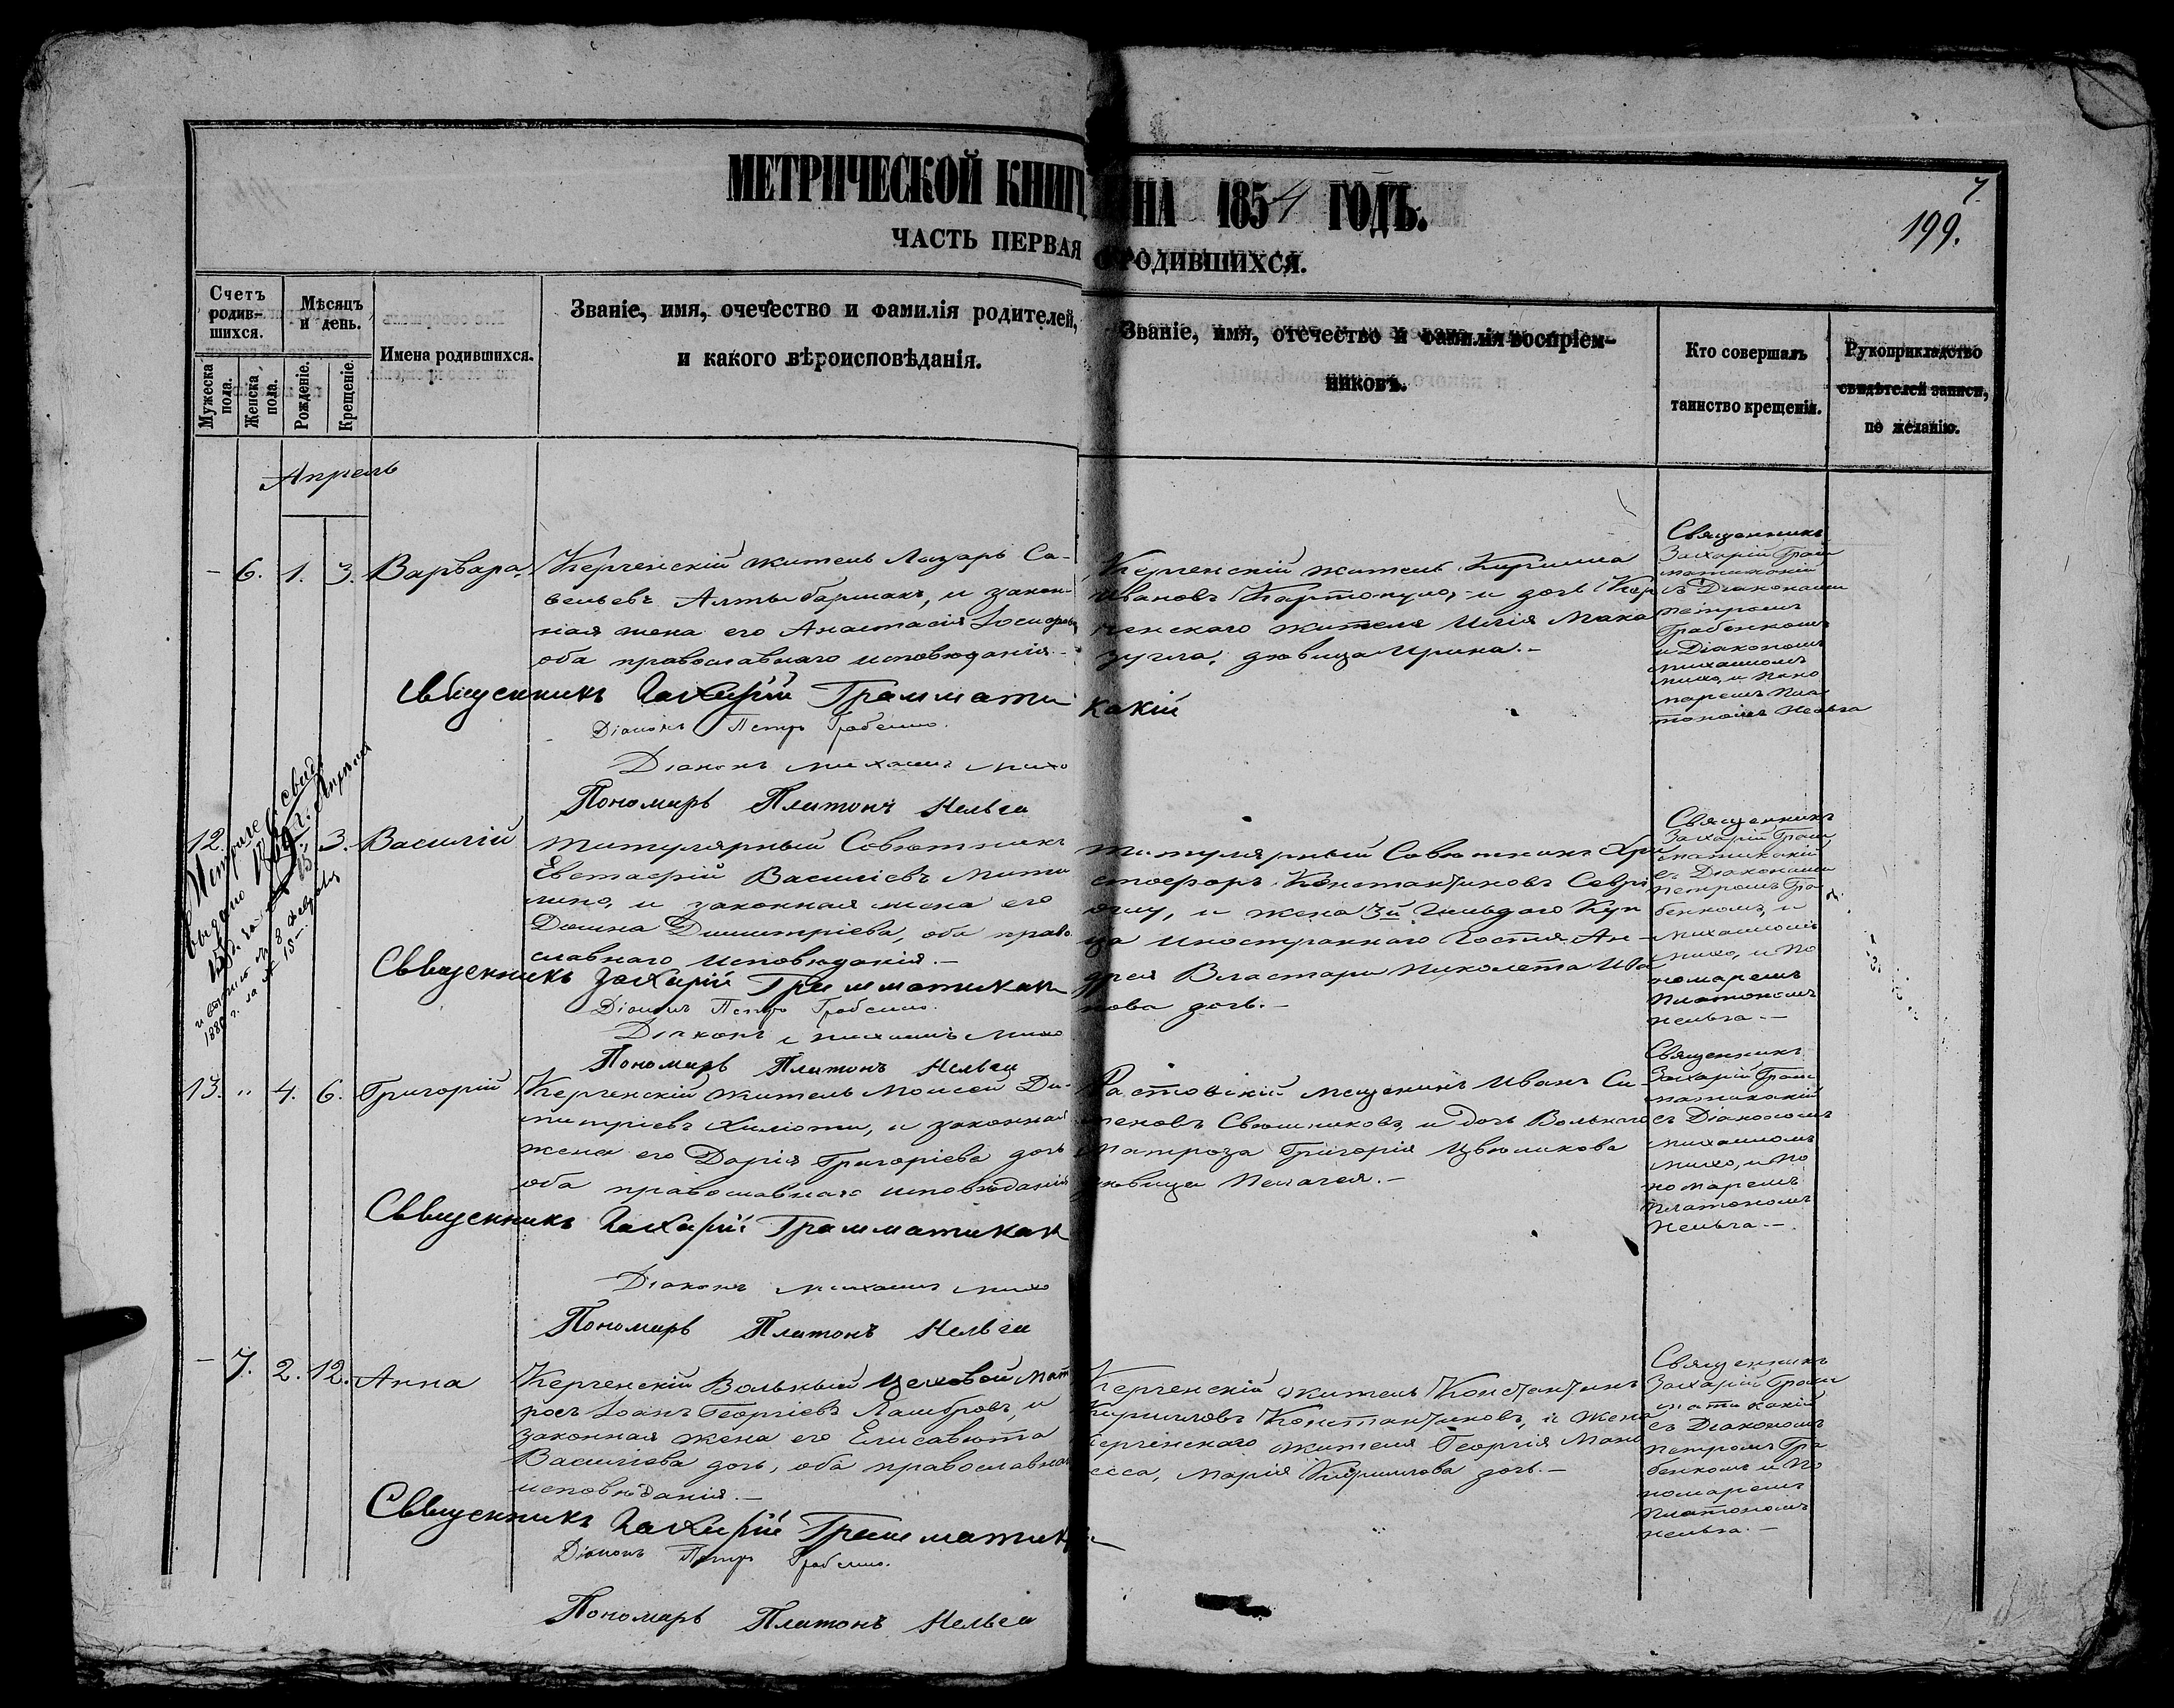 МЕТРИЧЕСКОЙ КНИГИ НА 1854 ГОДЪ.
ЧАСТЬ ПЕРВАЯ О РОДИВШИХСЯ.
7.
199.
Счетъ родившихся.
Мужеска пола.
Женска пола.
Мѣсяцъ и день.
Рожденіе.
Крещеніе.
Имена родившихся.
Званіе, имя, очечество и фамилія родителей,
и какого вѣроисповѣданія.
Званіе, имя, отечество и фамилія воспріем-
никовъ.
Кто совершалъ
таинство крещенія.
Рукоприкладство
свидѣтелей записи,
по желанію.
Апрель
– 6. 1. 3. Варвара
Керченскій житель Лазарь Са-
вельевъ Алты бармакъ, и закон-
ная жена его Анастасія
оба православнаго исповѣданія.–
Керченскій житель Кирилла
Ивановъ и дочь Кер
ченскаго жителя Илія Мака
дѣвица Ирина.–
Священникъ
Захарій Грам
матикакій
съ Діаконами
Петромъ
Грабенкомъ
и Діакономъ
Михаиломъ
Михо, и Поно
маремъ Пла
тономъ Нельга
Священникъ Захарій Грамматикакій
Діаконъ Петръ Грабенко.
Діаконъ Михаилъ Михо
Пономарь Платонъ Нельга
12. 3. Василій
Титулярный Совѣтникъ
Евстафій Василіевъ Мити
лино, и законная жена его
Домна Димитріева, оба право
славнаго исповѣданія.–
Титулярный Совѣтникъ Хри
стофоръ Константиновъ Севри
и жена 3й Гильдіи Куп
ца Иностраннаго Гостя Ан-
дрея Властари Николета Ива
нова дочь.–
Священникъ
Захарій Грам
матикакій
съ Діаконами
Петромъ Гра
бенкомъ, и
Михаиломъ
Михо, и По
номаремъ
Платономъ
Нельга.–
Метриче свид.
выдано
1880 г. за № 15–.
Священникъ Захарій Грамматикак
Діаконъ Петръ Грабенко.
Діаконъ Михаилъ Михо
Пономарь Платонъ Нельга
13. " 4. 6. Григорій
Керченскій житель Моисей Ди-
митріевъ и законная
жена его Дарія Григоріева дочь
оба православнаго исповѣданія
мещанинъ Иванъ Си
меновъ и дочь Вольнаго
Матроза Григорія Цвѣтикова
дѣвица Пелагея.–
Священникъ
Захарій Грам
матикакій
съ Діакономъ
Михаиломъ
Михо, и По
номаремъ
Платономъ
Нельга.–
Священникъ Захарій Грамматикак
Діаконъ Михаилъ Михо
Пономарь Платонъ Нельга
– 7. 2. 12. Анна
Керченскій Вольный Цеховой Мат
росъ Іоанъ Георгіевъ и
законная жена его Елисавета
Василіева дочь, оба православнаго
исповѣданія.–
Керченскій житель Константинъ
Кирилловъ Константиновъ, и жена
Керченскаго жителя Георгія
Марія Кириллова дочь.–
Священникъ
Захарій Грам
матикакій
съ Діакономъ
Петромъ Гра
бенкомъ и По
номаремъ
Платономъ
Нельга.–
Священникъ Захарій Грамматик
Діаконъ Петръ Грабенко.
Пономарь Платонъ Нельга